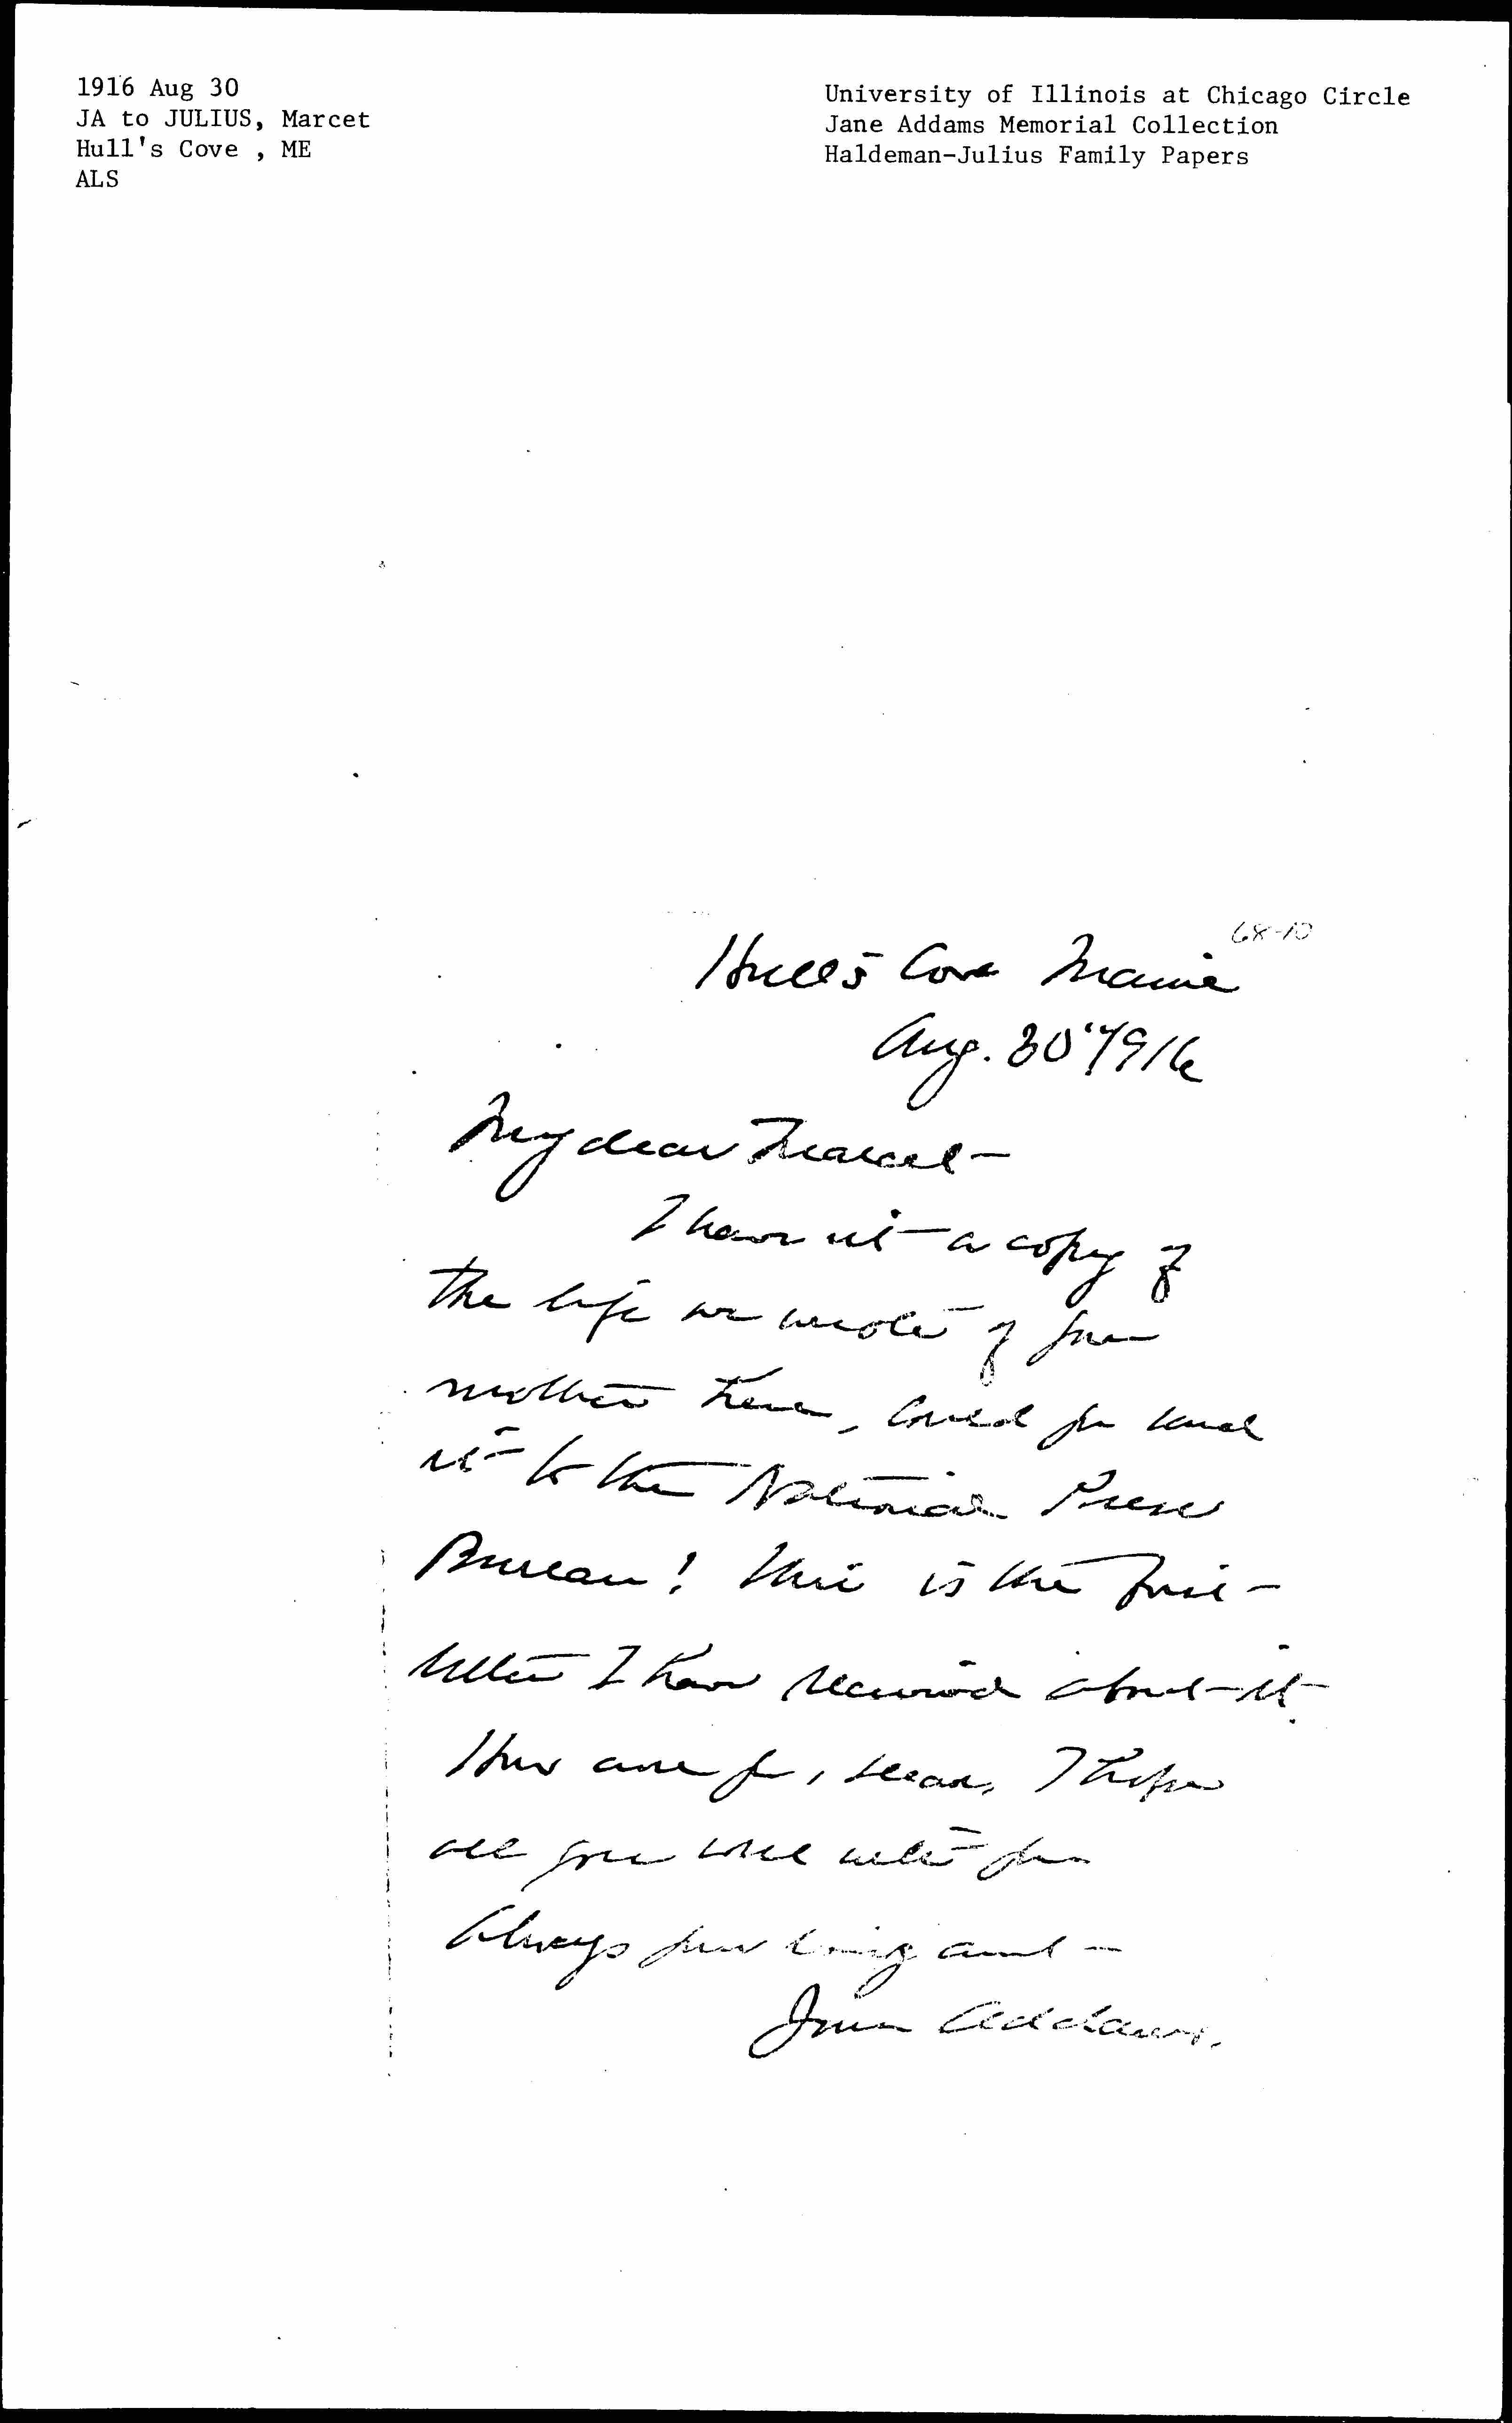 1916 Aug 30
JA to JULIUS, Marcet
Hull's Cove , ME
ALS
University of Illinois at Chicago Circle
Jane Addams Memorial Collection
Haldeman-Julius Family Papers
68-10
Hull's Cove Maine
Aug. 30" 1916
My dear Marcet —
I have not a copy of
the life we wrote of your
mother here, could you send
it to the National Press
Bureau! This is the first
letter I have received about it.
How are you, dear, I hope
all goes well with you
Always your loving aunt —
Jane Addams.